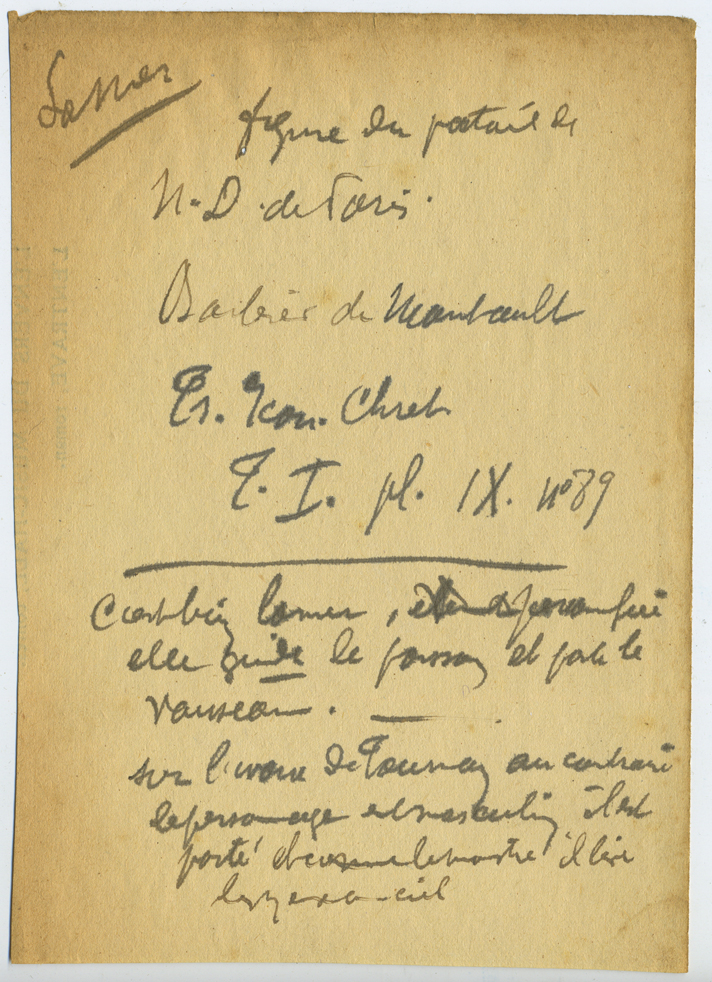 La mer
figure du portail de
N. D. de Paris.
Barbier de Montault
Tr. Icon. Chret.
T. I. pl. IX. n° 89
C'est bien la mer,
elle guide le poisson et porte le
vaisseau. —
sur l'ivoire de Tournay au contraire
le personnage est masculin il est
porté et comme le montre il lève
les yeux au ciel